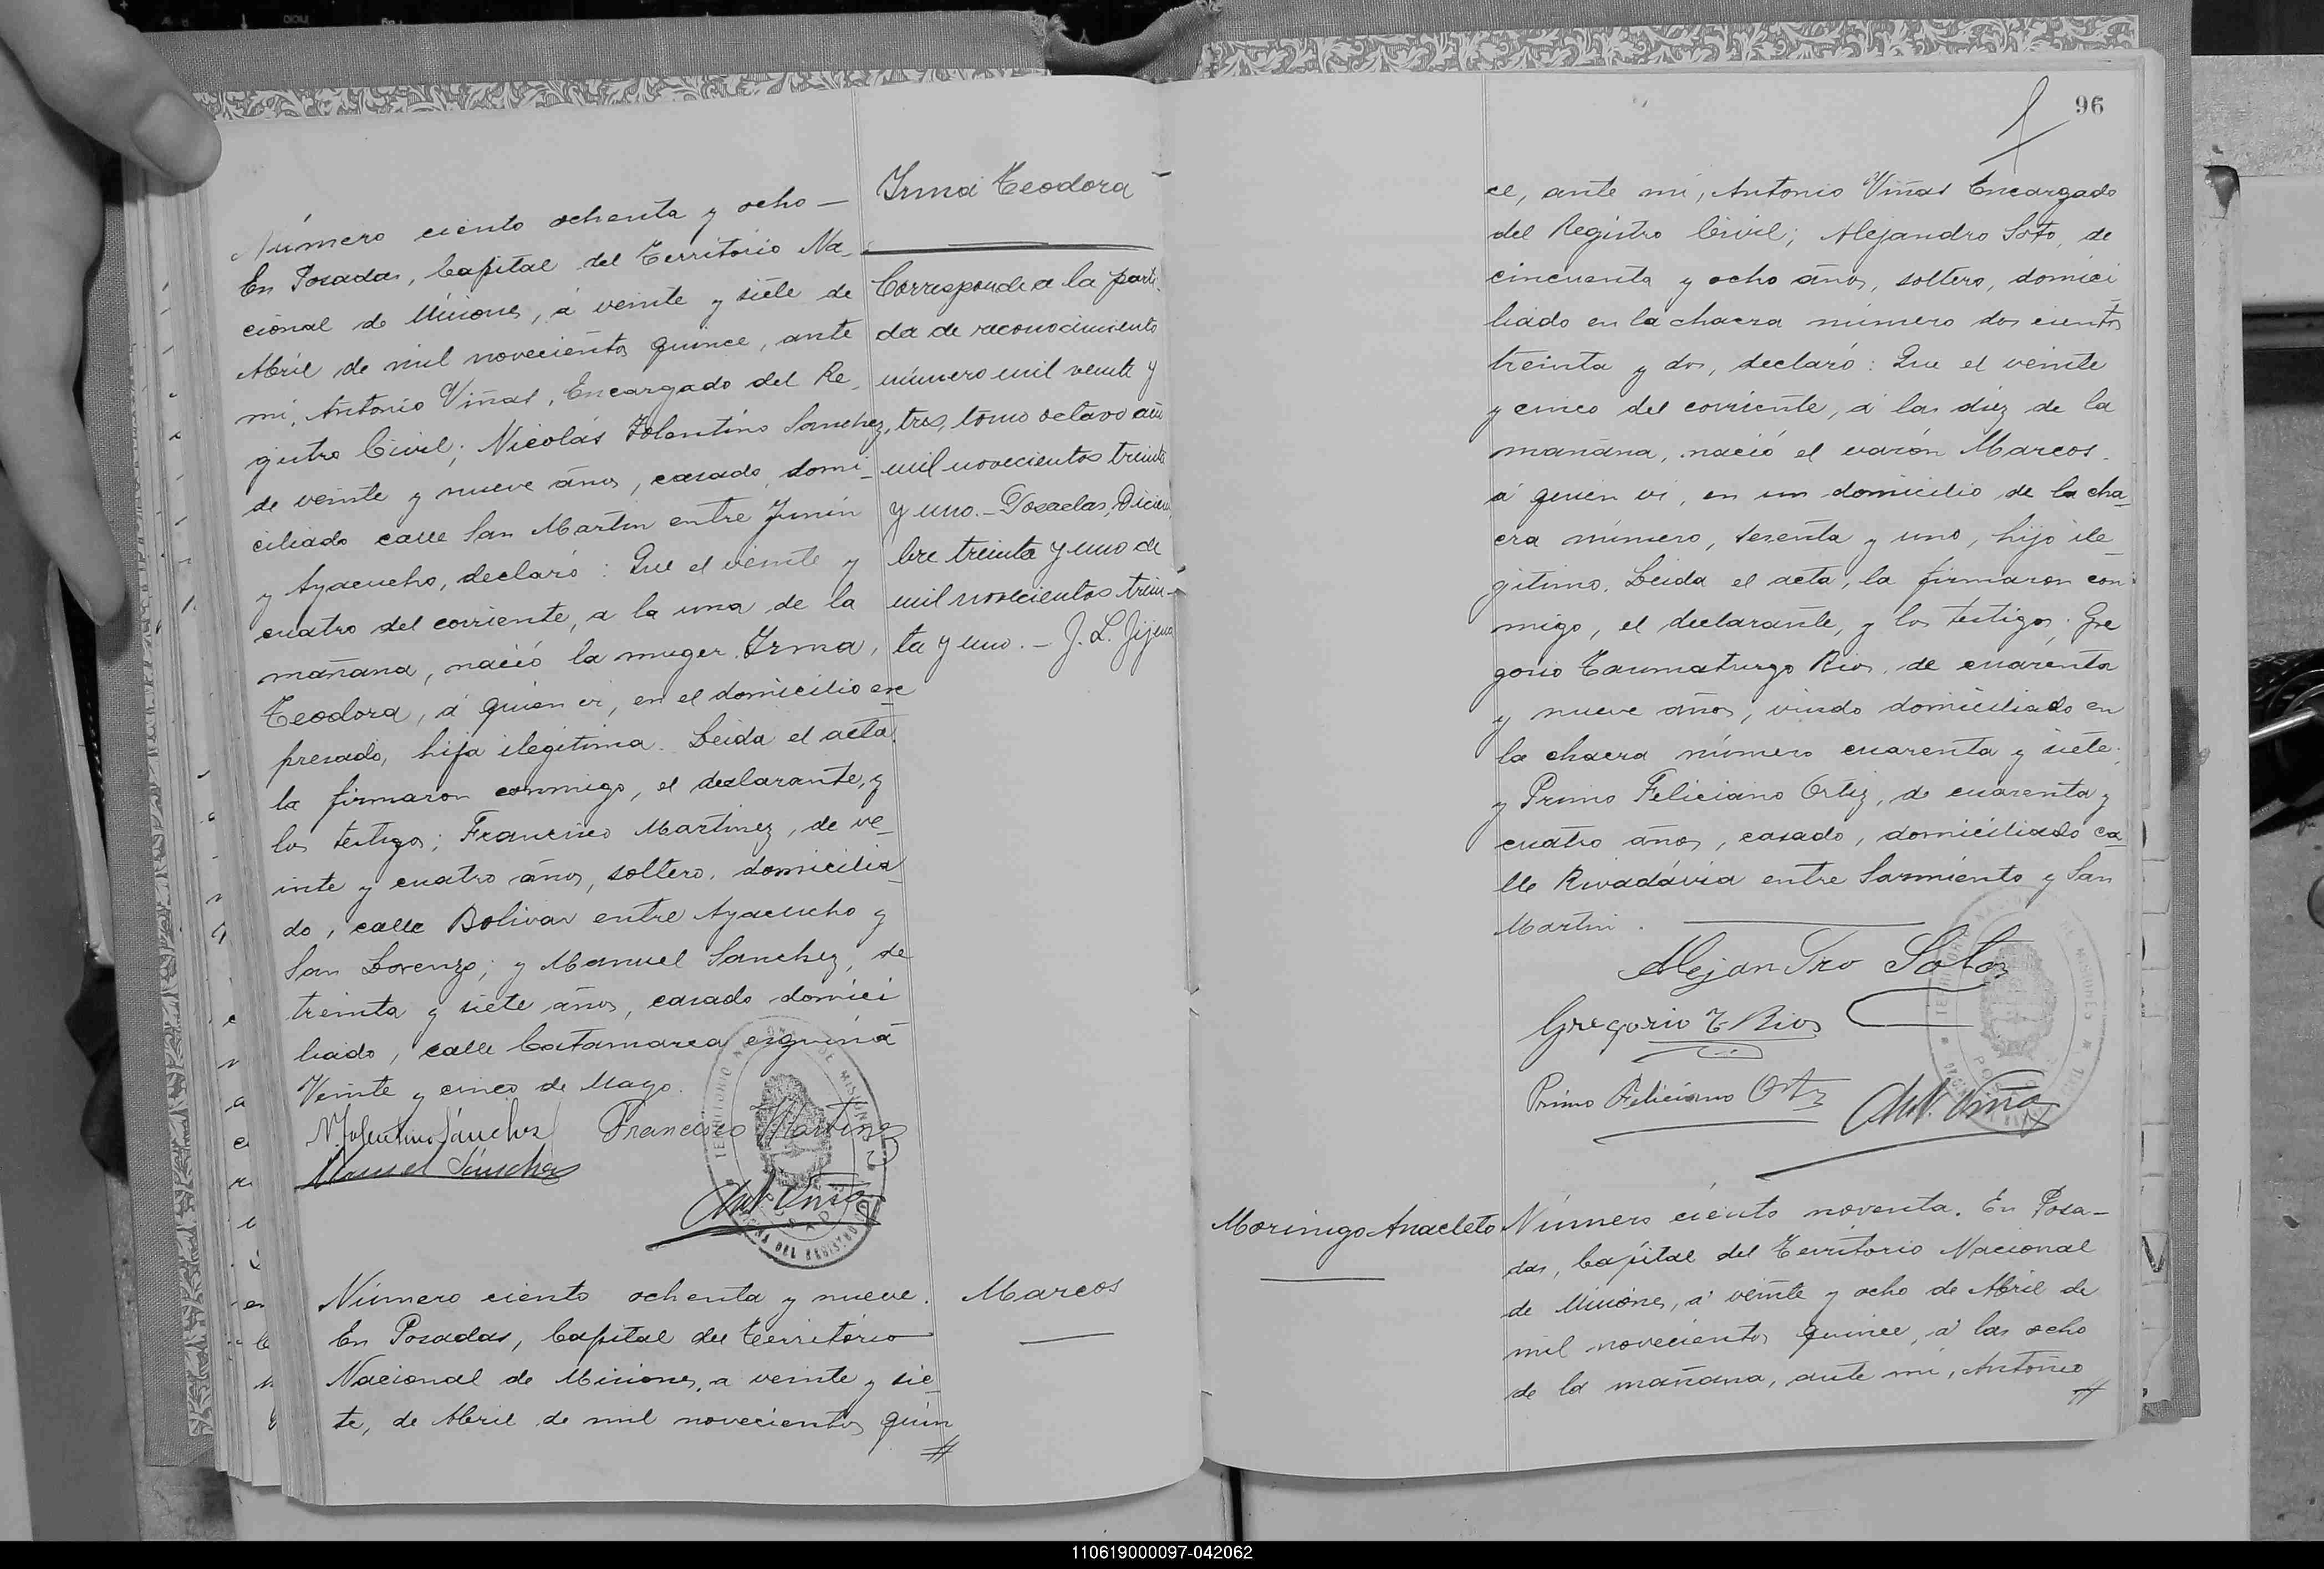 Número ciento ochenta y ocho —
En Posadas, Capital del Territorio Na-
cional de Misiones, á veinte y siete de
Abril de mil novecientos quince, ante
mí, Antonio Viñas, Encargado del Re-
gistro Civil; Nicolás Tolentino Sanchez,
de veinte y nueve años, casado, domi-
ciliado calle San Martin entre Junín
y Ayacucho, declaró: Que el veinte y
cuatro del corriente, a la una de la
mañana, nació la muger Irma,
Teodora, á quien ví, en el domicilio ex-
presado, hija ilegitima. Leida el acta
la firmaron conmigo, el declarante, y
los testigos; Francisco Martinez, de ve-
inte y cuatro años, soltero, domicilia-
do, calle Bolivar entre Ayacucho y
San Lorenzo; y Manuel Sanchez, de
treinta y siete años, casado domici
liado, calle Catamarca esquina
Veinte y cinco de Mayo.
N. Tolentino Sánchez Francisco Martinez
Manuel Sánchez
Ant. Viñas
Irma Teodora
Corresponde a la parti-
da de reconocimiento
número mil veinte y
tres, tomo octavo año
mil novecientos treinta
y uno.- Posadas, Diciem
bre treinta y uno de
mil novecientos trein-
ta y uno. - J. L. Jijena
Número ciento ochenta y nueve.
En Posadas, Capital del Territorio
Nacional de Misiones, a veinte y sie-
te, de Abril de mil novecientos quin
#
Marcos
96
ce, ante mí, Antonio Viñas Encargado
del Registro Civil; Alejandro Soto, de
cincuenta y ocho años, soltero, domici
liado en la chacra número dos cientos
treinta y dos, declaró: Que el veinte
y cinco del corriente, á las diez de la
mañana, nació el varón Marcos.
á quien ví, en un domicilio de la cha-
cra número, sesenta y uno, hijo ile-
gitimo. Leida el acta, la firmaron con
migo, el declarante, y los testigos; Gre
gorio Taumaturgo Rios, de cuarenta
y nueve años, viudo domiciliado en
la chacra número cuarenta y siete;
y Primo Feliciano Ortiz, de cuarenta y
cuatro años, casado, domiciliado ca-
lle Rivadávia entre Sarmiento y San
Martin.
Alejandro Soto
Gregorio T Rios
Primo Feliciano Ortiz
Ant. Viñas
Morinigo Anacleto
Número ciento noventa. En Posa-
das, Capital del Territorio Nacional
de Misiones, á veinte y ocho de Abril de
mil novecientos quince, á las ocho
de la mañana, ante mí, Antonio
#
110619000097-042062